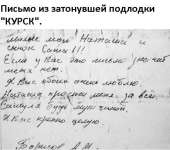 Письмо из затонувшей подлодки
"КУРСК".
Милые мои Наташа и
сынок Саша!!!
Если у вас это письмо, значит
меня нет.
Я вас обоих очень люблю.
Наташа, прости меня за всё
Сашуля будь мужчиной
Я Вас крепко целую.